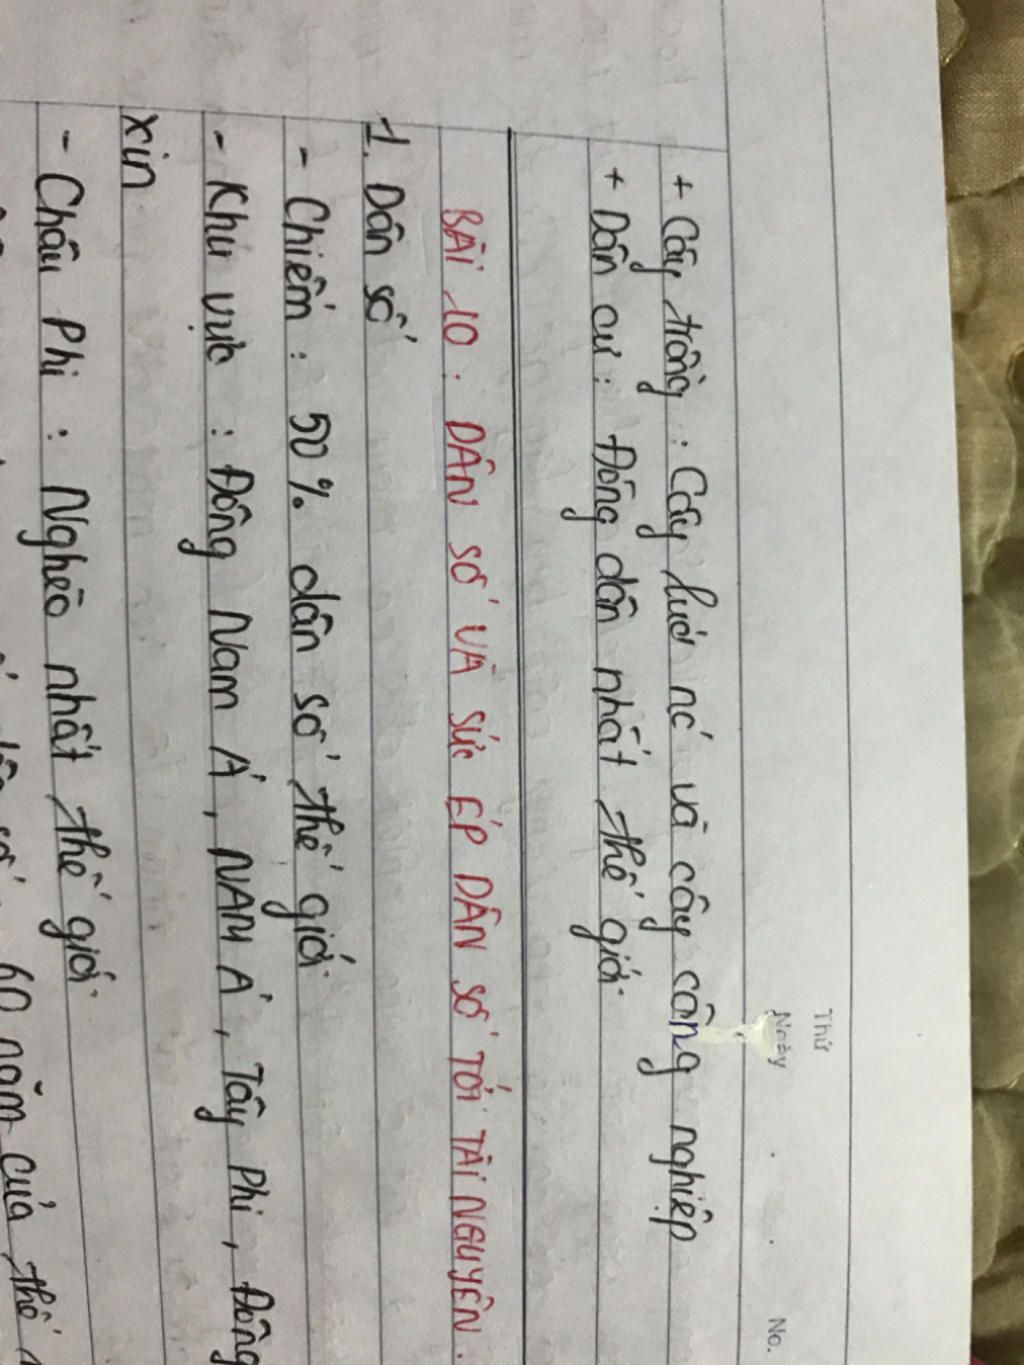 Thứ
Ngày
No.
+ Cây trồng : Cây lúa nc và cây công nghiệp
+ Dân cư : Đông dân nhất thế giới.
BÀI 10 : DÂN SỐ VÀ SỨC ÉP DÂN SỐ TỚI TÀI NGUYÊN.
1. Dân số
- Chiếm : 50% dân số thế giới.
- Khu vực : Đông Nam Á, NAM Á, Tây Phi, Đông
xin
- Châu Phi : Nghèo nhất thế giới.
60 năm của thế